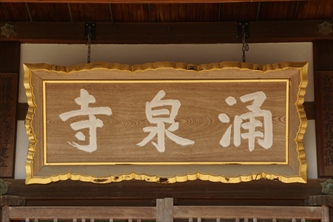 涌泉寺